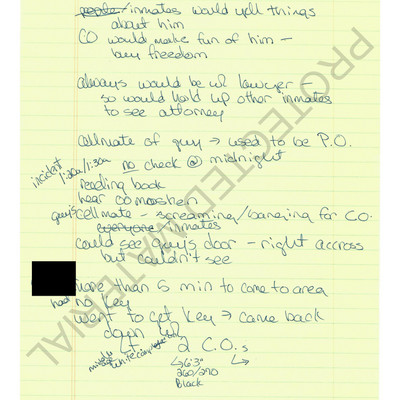 people/inmates would yell things
about him
CO would make fun of him –
buy freedom
always would be w/ lawyer –
so would hold up other inmates
to see attorney
cellmate of guy → used to be P.O.
incident 1:20a/1:30a
no check @ midnight
reading book
hear commotion
guy's cellmate – screaming/banging for C.O.
everyone inmates
could see guy's door – right accross
but couldn't see
more than 5 min to come to area
had no key
went to get key → came back
down
2 C.O.s
6'3"
260/270
Black
PROTECTED MATERIAL